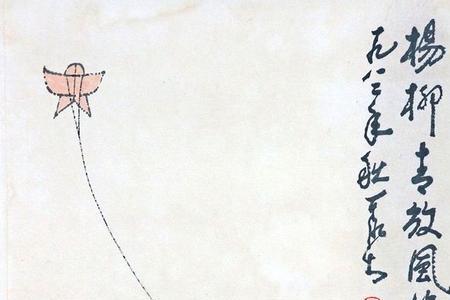 楊柳青放風
一九八三年秋